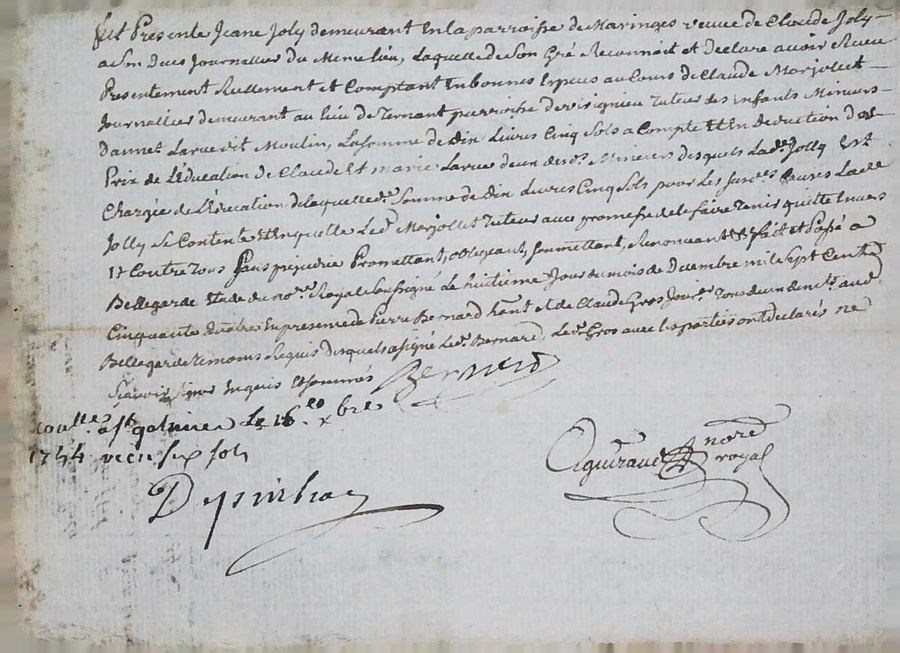 fut Presente Jeane Joly demeurant En la parroisse de Maringes veuve de Claude Joly
Journallier du Laquelle de Son Gré Reconnoit et declare avoir Receu
Presentement Reellement et Comptant En bonnes Especes au Cours de Claude Marjollet
Journallier demeurant au lieu de Ternant parroisse de tuteur des Enfants Mineurs
Larue dit Moulin, La somme de dix Livres Cinq Sols a Compte Et En deduction du
Prix de L'Education de Claude Et marie Larue deux desd. Mineurs desquels Lad. Jolly Est
Chargée de L'Education de laquelle d. Somme de dix Livres Cinq Sols pour Les Causes Lade
Jolly Se Contente Et En quitte Led. Marjollet tuteur avec promesse de le faire tenir quitte Envers
Et Contre tous Sans prejudice Promettant, obligeant, soumettant, Renoncant &c fait et Passé a
Bellegarde Etude du nore. Royal Soussigné le huitieme Jour du mois de Decembre mil Sept Cents
Cinquante quatre En presence de Pierre Bernard Et de Claude Gros Jour. tous deux aud.
Bellegarde temoins Requis desquels a signé Led. Bernard Led. Gros avec les parties ont declarés ne
Scavoir signer Enquis Et sommés Bernard
a st galmier Le 16 xbre
1754 six sols
nore
royal